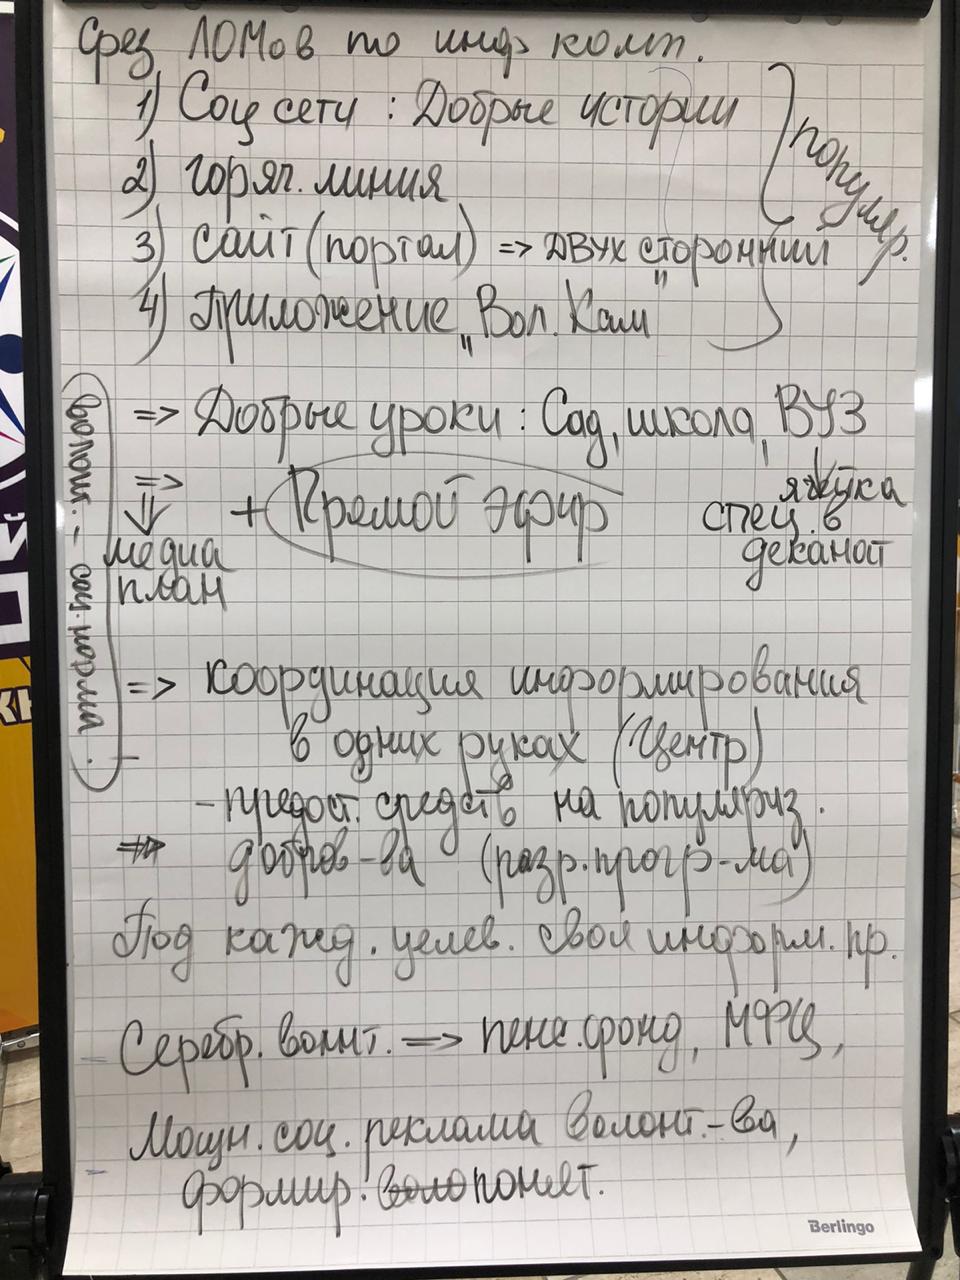 Срез ЛОМов по инф комп.
1) Соц сети : Добрые истории
2) горяч. линия
3) сайт (портал) => двух сторонний
4) Приложение "Вол. Кам"
популяр.
=> Добрые уроки : Сад, школа, ВУЗ
=>
+ Прямой эфир
спец. в
деканат
медиа
план
волонт. - соц. норма.
=> координация информирования
в одних руках (Центр)
- предост. средств на популяриз.
=> добров-ва (разр. прогр-ма)
Под кажд. целев. своя информ. пр.
- Серебр. волнт. => пенс. фонд, МФЦ,
Мощн. соц. реклама волонт.-ва,
- формир. понят.
Berlingo